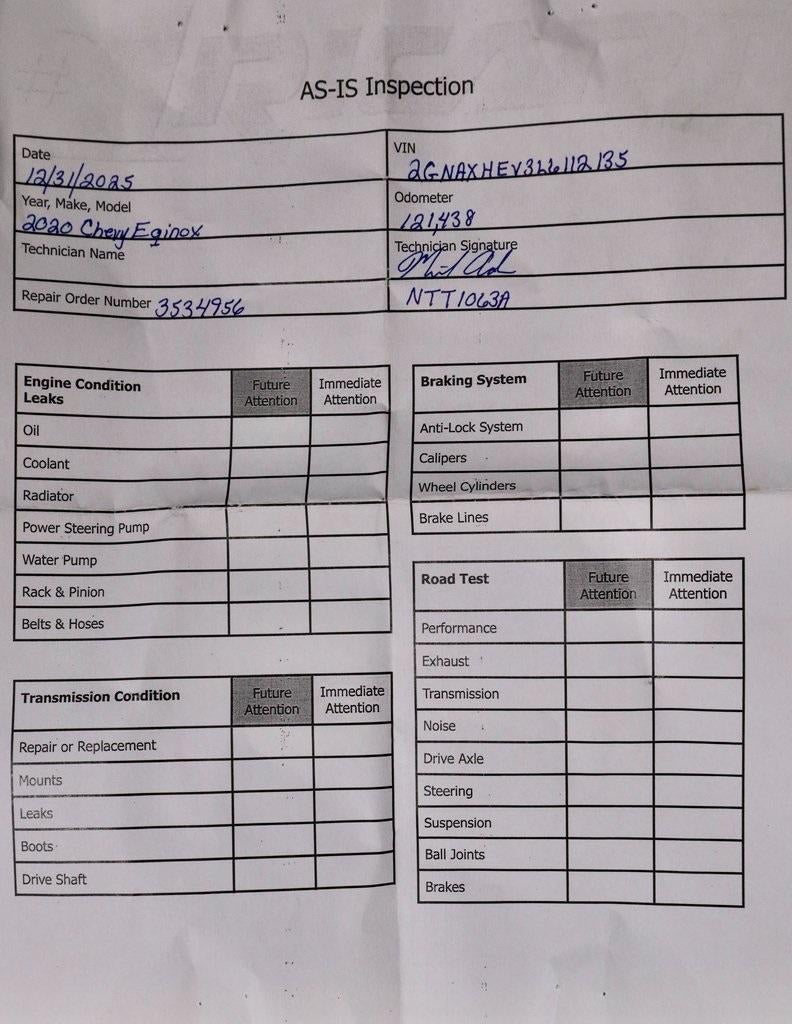 AS-IS Inspection
Date
12/31/2025
VIN
2GNAXHEV3L6112135
Year, Make, Model
2020 Chevy Eqinox
Odometer
121,438
Technician Name
Technician Signature
Repair Order Number 3534956
NTT1063A
Engine Condition Leaks Future Attention Immediate Attention
Oil
Coolant
Radiator
Power Steering Pump
Water Pump
Rack & Pinion
Belts & Hoses
Transmission Condition Future Attention Immediate Attention
Repair or Replacement
Mounts
Leaks
Boots
Drive Shaft
Braking System Future Attention Immediate Attention
Anti-Lock System
Calipers
Wheel Cylinders
Brake Lines
Road Test Future Attention Immediate Attention
Performance
Exhaust
Transmission
Noise
Drive Axle
Steering
Suspension
Ball Joints
Brakes